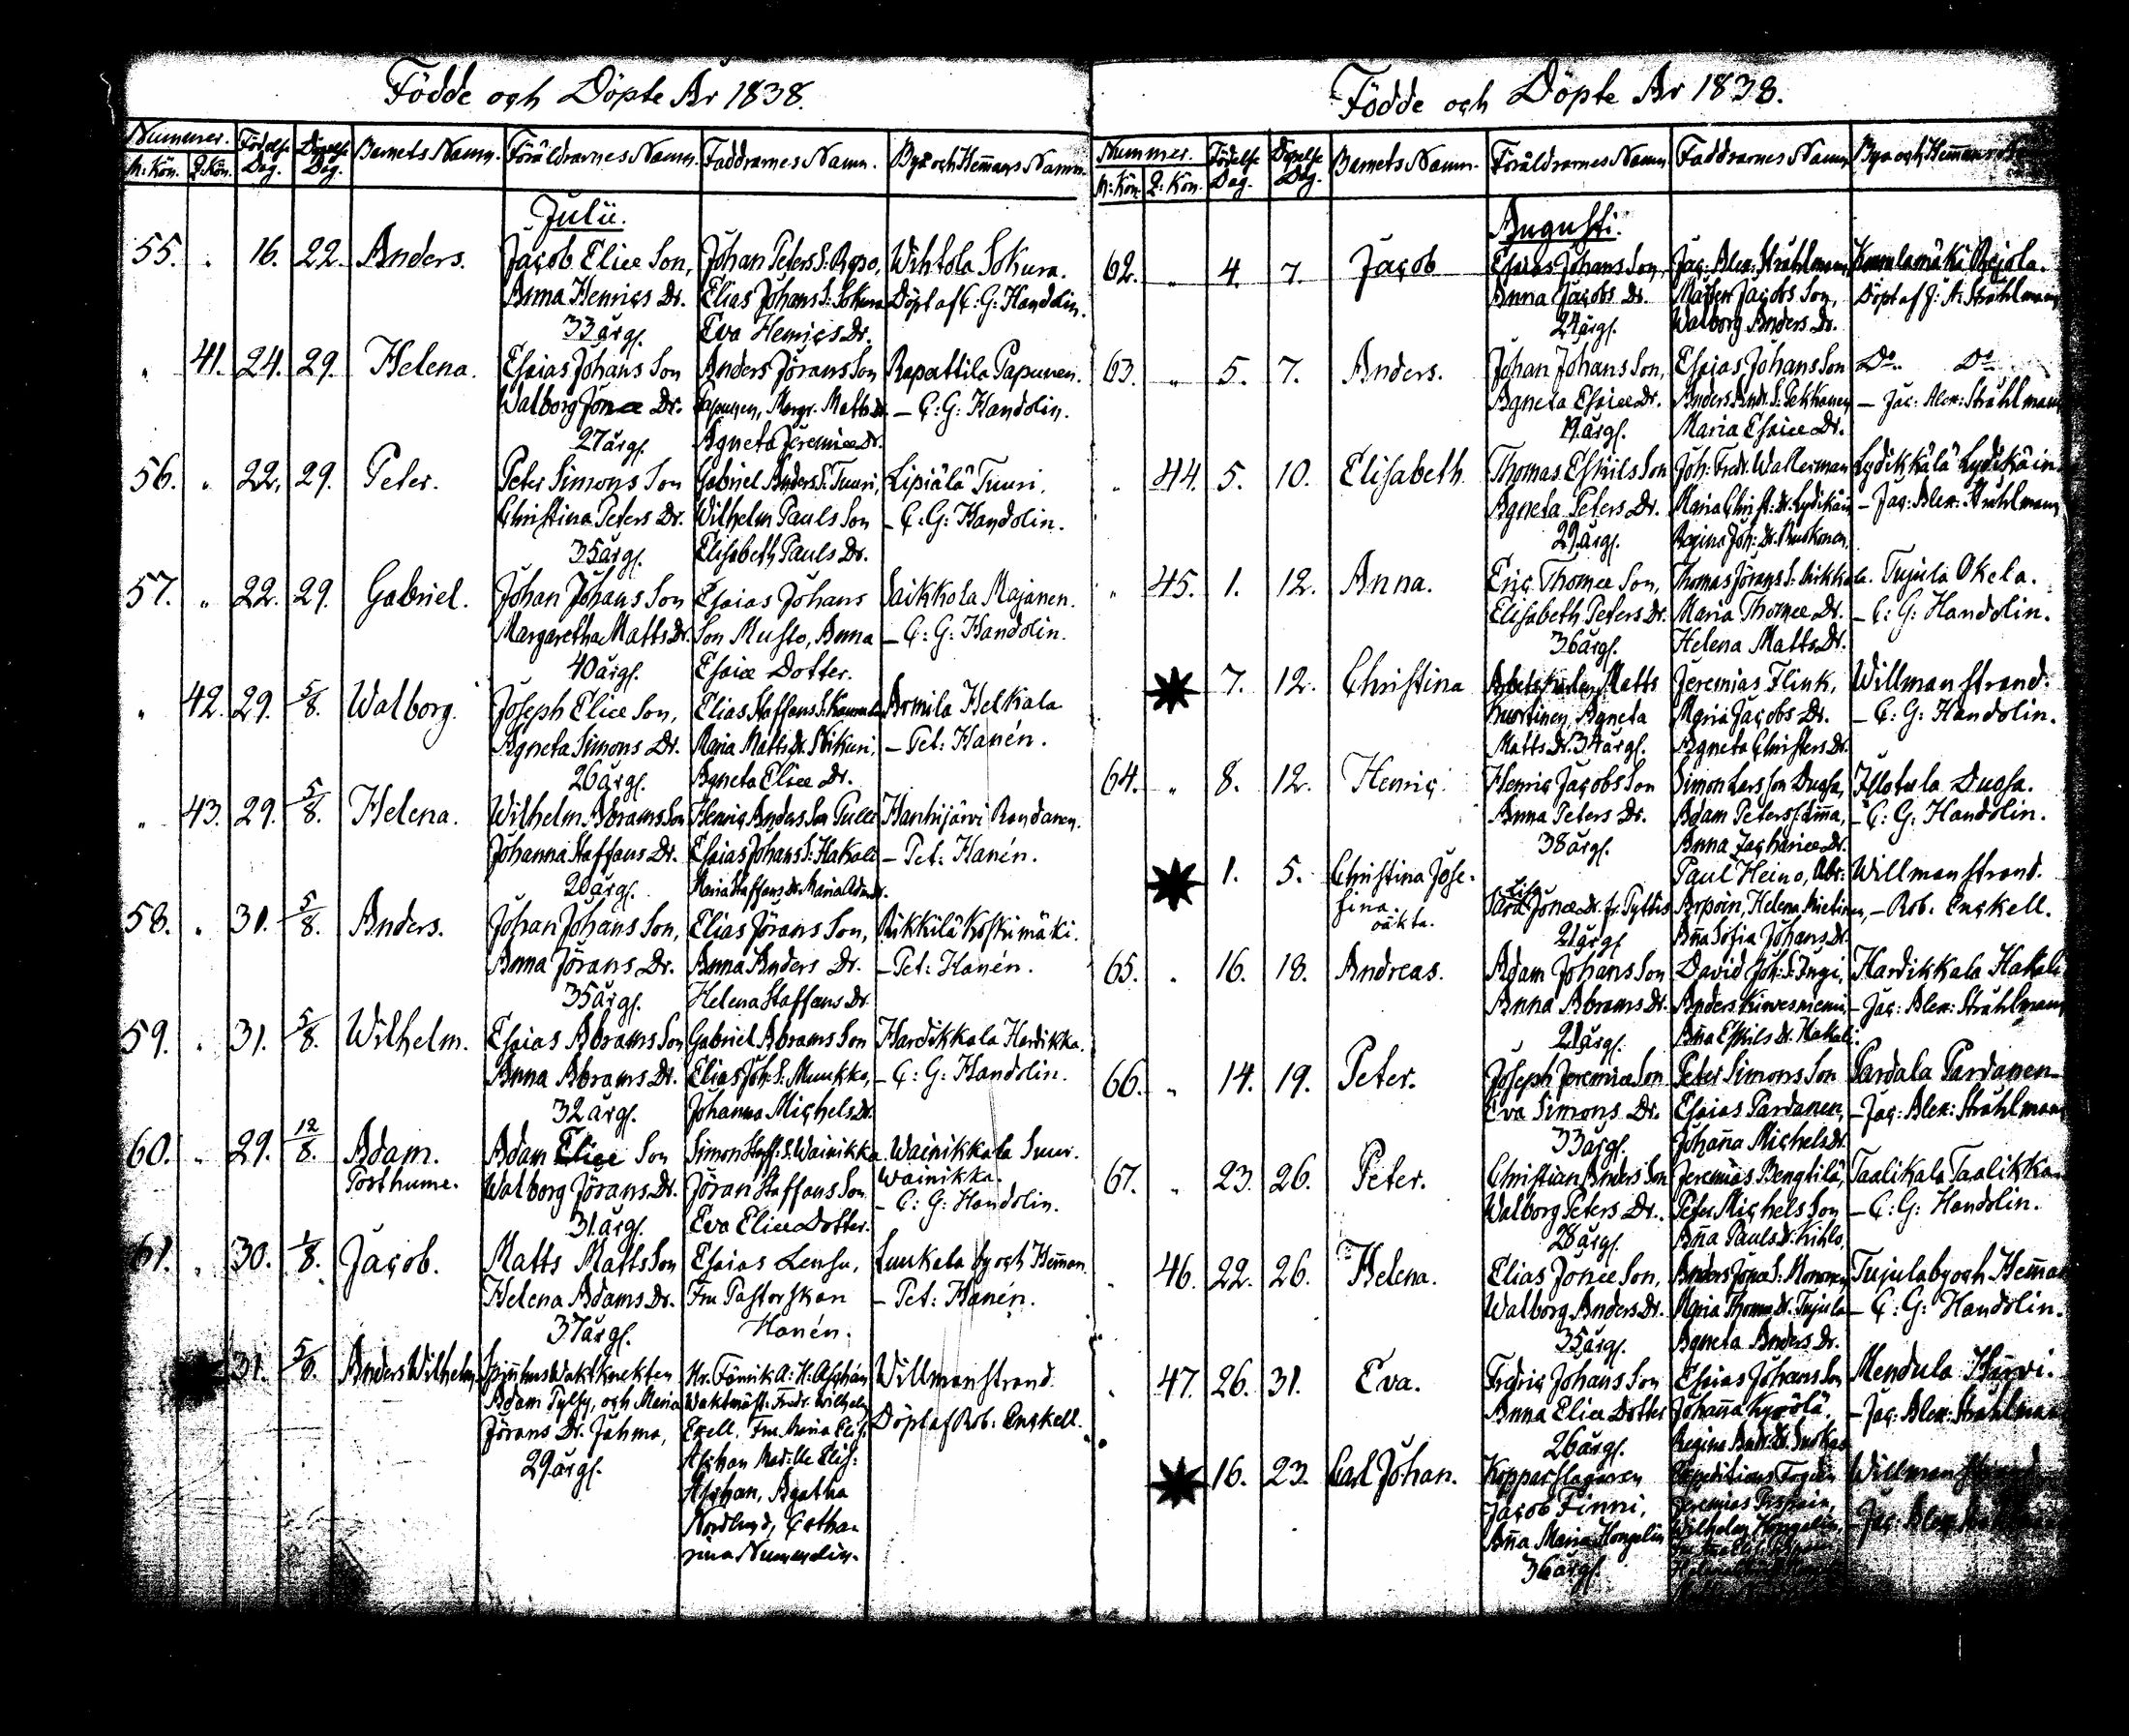 Födde och Döpte År 1838.
Nummer. Födelse Dag. Döpelse Dag. Barnets Namn. Föräldrarnes Namn. Faddrarnes Namn. Bys och Hem̄ans Namn.
M: Kön. Q: Kön.
Julii.
55. „ 16. 22. Anders. Jacob Eliæ Son, Johan Peters S: Wihtola Sokura.
Anna Henrics Dr. Elias Johans S: Sokura Döpt af C: G: Handolin.
33 årg. Eva Henrics Dr.
„ 41. 24. 29. Helena. Esaias Johans Son Anders Jörans Son Rapattila Papunen.
Walborg Jonæ Dr. Papunen, Margr. Matts Dr. – C: G: Handolin.
27 årg. Agneta Jeremiæ Dr.
56. „ 22. 29. Peter. Peter Simons Son Gabriel Anders S: Tuuri, Lipiälä Tuuri.
Christina Peters Dr. Wilhelm Pauls Son – C: G: Handolin.
35 årg. Elisabeth Pauls Dr.
57. „ 22. 29. Gabriel. Johan Johans Son Esaias Johans Saikkola Majanen.
Margaretha Matts Dr. Son Musto, Anna – C: G: Handolin.
40 årg. Esaiæ Dotter.
„ 42. 29. 5/8. Walborg. Joseph Eliæ Son, Elias Staffans S: Armila Helkala
Agneta Simons Dr. Maria Matts Dr. – Pet: Hanén.
26 årg. Agneta Eliæ Dr.
„ 43. 29. 5/8. Helena. Wilhelm Abrams Son Henric Anders Son Pulli Hanhijärvi Randanen.
Johanna Staffans Dr. Esaias Johans S: Hakali – Pet: Hanén.
20 årg. Maria Staffans Dr. Maria Adams Dr.
58. „ 31. 5/8. Anders. Johan Johans Son, Elias Jörans Son, Rikkilä Koskimäki.
Anna Jörans Dr. Anna Anders Dr. – Pet: Hanén.
35 årg. Helena Staffans Dr.
59. „ 31. 5/8. Wilhelm. Esaias Abrams Son Gabriel Abrams Son Hardikkala Hardikka.
Anna Abrams Dr. Elias Joh: S: Muukka, – C: G: Handolin.
32 årg. Johanna Michels Dr.
60. „ 29. 12/8. Adam. Adam Eliæ Son Simon Staff: S: Wainikka Wainikkala Suur.
Posthume. Walborg Jörans Dr. Jöran Staffans Son Wainikka.
31 årg. Eva Eliæ Dotter. – C: G: Handolin.
61. „ 30. 1/8. Jacob. Matts Matts Son Esaias Lensu, Luukala by och Hem̄an.
Helena Adams Dr. Fru Pastorskan – Pet: Hanén.
37 årg. Hanén.
31. 5/8. Anders Wilhelm Spin̄hus Waktknekten Hr. Fänrik A: H: Aschan Willmanstrand.
Adam Pylsy, och Maria Waktmäst: Fredr. Wilhelm Döpt af Rob: Enckell.
Jörans Dr. Juhma, Exell, Fru Maria Elis:
29 årg. Aschan Mad:lle Elis:
Aschan, Agatha
Nordlund, Catha-
rina Nummelin.
Födde och Döpte År 1838.
Nummer. Födelse Dag. Döpelse Dag. Barnets Namn. Föräldrarnes Namn. Faddrarnes Namn. Bys och Hem̄ans
M: Kön. Q: Kön.
Augusti.
62. „ 4. 7. Jacob Esaias Johans Son, Jac: Alex: Stråhlmann, Reijola.
Anna Jacobs Dr. Matts Jacobs Son, Döpt af J: A: Stråhlmann
24 årg. Walborg Anders Dr.
63. „ 5. 7. Anders. Johan Johans Son, Esaias Johans Son D:o D:o
Agneta Esaiæ Dr. Anders Andr: S: Pekkanen – Jac: Alex: Stråhlmann
19 årg. Maria Esaiæ Dr.
„ 44. 5. 10. Elisabeth. Thomas Eskils Son Joh: Fredr. Wallerman Lydikkälä Lydikäin.
Agneta Peters Dr. Maria Christ: Dr. Lydikäin – Jac: Alex: Stråhlmann
29 årg. Regina Joh: Dr. Ruskonen.
„ 45. 1. 12. Anna. Eric Thomæ Son, Thomas Jörans S: Sikkala. Tujula Okela.
Elisabeth Peters Dr. Maria Thomæ Dr. – C: G: Handolin.
36 årg. Helena Matts Dr.
7. 12. Christina Arbetskarlen Matts Jeremias Flink, Willmanstrand.
Agneta Maria Jacobs Dr. – C: G: Handolin.
Matts Dr. 34 årg. Agneta Christers Dr.
64. „ 8. 12. Henric. Henric Jacobs Son Simon Lars Son Duasa, Ylotula Duasa.
Anna Peters Dr. Adam Peters S: – C: G: Handolin.
38 årg. Anna Zachariæ Dr.
1. 5. Christina Jose- Paul Heino, Abr. Willmanstrand.
fina. Lisa Sara Jonæ Dr. fr. Pyttis Arpoin, Helena Mietinen, – Rob. Enckell.
oäkta. 21 årg. An̄a Sofia Johans Dr.
65. „ 16. 18. Andreas. Adam Johans Son David Joh: S: Ingi, Hardikkala Hakali
Anna Abrams Dr. Anders Kirwesniemi, – Jac: Alex: Stråhlmann
21 årg. An̄a Eskils Dr. Hakali.
66. „ 14. 19. Peter. Joseph Jeremiæ Son Peter Simons Son Pardala Pardanen
Eva Simons Dr. Esaias Pardanen, – Jac: Alex: Stråhlmann
33 årg. Johan̄a Michels Dr.
67. „ 23. 26. Peter. Christian Anders Son Jeremias Bengtilä, Taalikala Taalikka
Walborg Peters Dr. Peter Michels Son – C: G: Handolin.
28 årg. An̄a Pauls Dr. Kihlo,
„ 46. 22. 26. Helena. Elias Jonæ Son, Anders Jonæ S: Mononen Tujula by och Hem̄an
Walborg Anders Dr. Maria Thomæ Dr. Tujula – C: G: Handolin.
35 årg. Agneta Anders Dr.
„ 47. 26. 31. Eva. Fredric Johans Son Esaias Johans Son Mendula Hurvi.
Anna Eliæ Dotter Johan̄a Hyrölä, – Jac: Alex: Stråhlmann
26 årg. Regina Andr. Dr.
16. 23. Carl Johan. Kopparslagaren Expeditions Fogden Willmanstrand
Jacob Finni, Jeremias – Jac: Alex:
An̄a Maria Hongelin Wilhelm Hongelin,
36 årg.